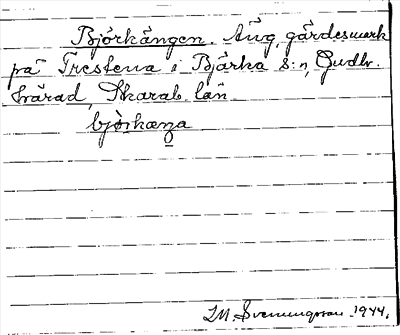 Björkängen. Äng, gärdesmark
på Trestena i Bjärka s:n, Gudh.
härad, Skarab. län.
björkæŋa
I.M. Svenningsson 1944.